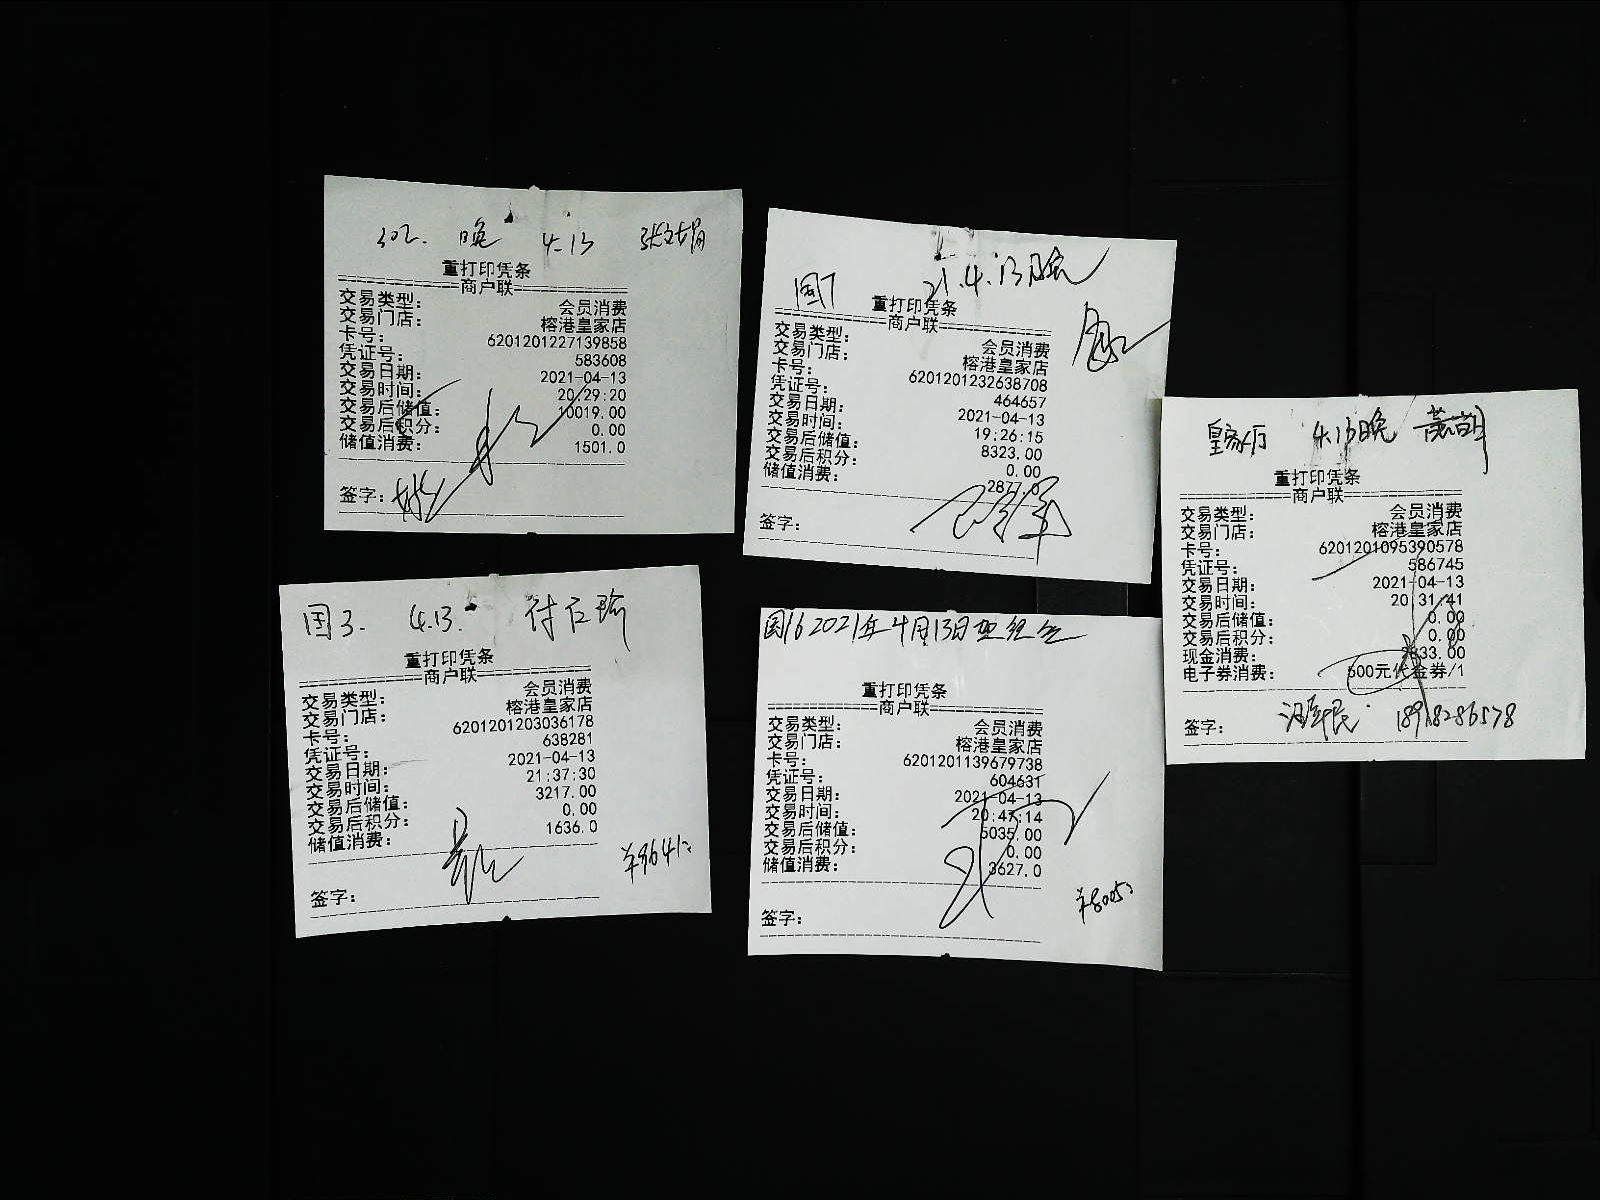 302. 晚 4.13
重打印凭条
商户联
交易类型: 会员消费
交易门店: 榕港皇家店
卡号: 6201201227139858
凭证号: 583608
交易日期: 2021-04-13
交易时间: 20:29:20
交易后储值: 10019.00
交易后积分: 0.00
储值消费: 1501.0
签字:
国7 21.4.13晚
重打印凭条
商户联
交易类型: 会员消费
交易门店: 榕港皇家店
卡号: 6201201232638708
凭证号: 464657
交易日期: 2021-04-13
交易时间: 19:26:15
交易后储值: 8323.00
交易后积分: 0.00
储值消费: 2877.0
签字:
皇家厅 4.13晚
重打印凭条
商户联
交易类型: 会员消费
交易门店: 榕港皇家店
卡号: 6201201095390578
凭证号: 586745
交易日期: 2021-04-13
交易时间: 20:31:41
交易后储值: 0.00
交易后积分: 0.00
现金消费: 433.00
电子券消费: 500元代金券/1
签字:
国3. 4.13.
重打印凭条
商户联
交易类型: 会员消费
交易门店: 榕港皇家店
卡号: 6201201203036178
凭证号: 638281
交易日期: 2021-04-13
交易时间: 21:37:30
交易后储值: 3217.00
交易后积分: 0.00
储值消费: 1636.0
签字:
国16 2021年4月13日
重打印凭条
商户联
交易类型: 会员消费
交易门店: 榕港皇家店
卡号: 6201201139679738
凭证号: 604631
交易日期: 2021-04-13
交易时间: 20:47:14
交易后储值: 5035.00
交易后积分: 0.00
储值消费: 3627.0
签字: